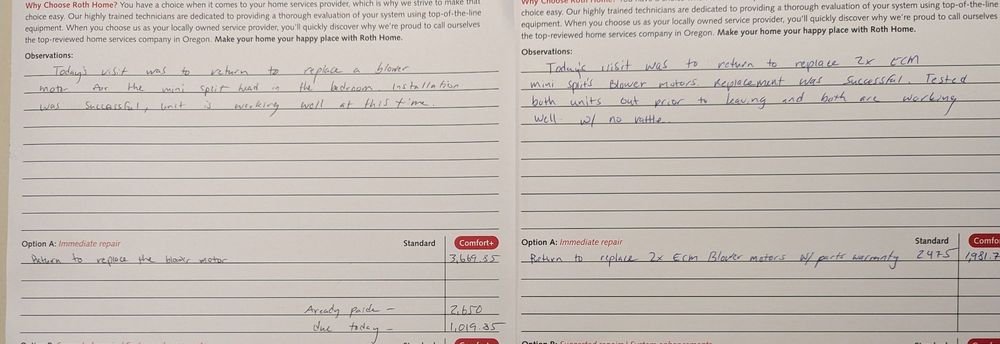 Why Choose Roth Home? You have a choice when it comes to your home services provider, which is why we strive to make that
choice easy. Our highly trained technicians are dedicated to providing a thorough evaluation of your system using top-of-the-line
equipment. When you choose us as your locally owned service provider, you'll quickly discover why we're proud to call ourselves
the top-reviewed home services company in Oregon. Make your home your happy place with Roth Home.
Observations:
Today's visit was to return to replace a blower
motor for the mini split head in the bedroom. Installation
was successful, unit is working well at this time.
Option A: Immediate repair Standard Comfort+
Return to replace the blower motor 3,669.35
Aready paide - 2,650
due today - 1,019.35
choice easy. Our highly trained technicians are dedicated to providing a thorough evaluation of your system using top-of-the-line
equipment. When you choose us as your locally owned service provider, you'll quickly discover why we're proud to call ourselves
the top-reviewed home services company in Oregon. Make your home your happy place with Roth Home.
Observations:
Today's visit was to return to replace 2x ECM
mini split's Blower motors. Replacement was successful. Tested
both units out prior to leaving and both are working
well w/ no rattle.
Option A: Immediate repair Standard Comfo
Return to replace 2x Ecm Blower motors w/ parts warranty 2475 1,981.7